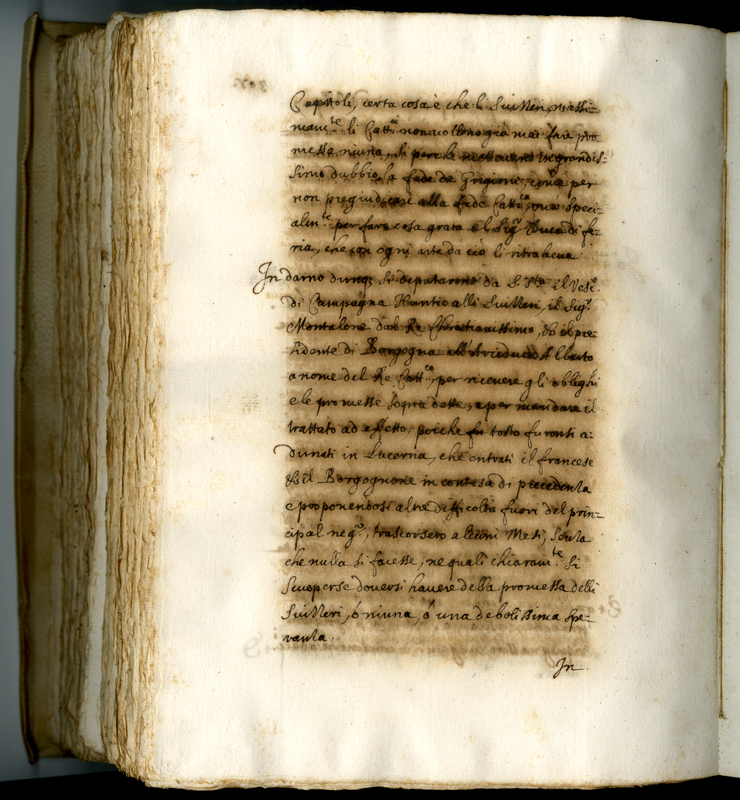 Capitoli, certa cosa è che li Suizzeri, massi-
mam.te li Catt.ci non vollono già mai fare pro
messa niuna, sì perche mettevano in grandis-
simo dubbio la fede de Grigioni, come per
non pregiudicare alla fede Catt.ca, mas speci-
alm.te per fare cosa grata al Sig.r Duca di fe-
ria, che con ogni arte da ciò li ritraheva.
In darno dunq; si deputarono da S. S.tà il Vesc.o
di Campagna Nuntio alli Suizzeri, il Sig.r
Montalone dal Re Christianissimo, et il pre-
sidente di Borgogna all'Arciduca Alberto
a nome del Re Catt.co, per ricevere gli oblighi
e le promesse sopra dette, e per mandare il
trattato ad effetto, poiche fu tosto furonsi a-
dunati in Lucerna, che entrati il francese
et il Borgognone in contesa di precedenza
e proponendosi altre difficoltà fuori del prin-
cipal neg.o, trascorsero alcuni Mesi, senza
che nulla si facesse, ne quali chiaram.te si
scuoperse doversi havere della promessa delli
Suizzeri, ò niuna, ò una debolissima spe-
ranza.
In